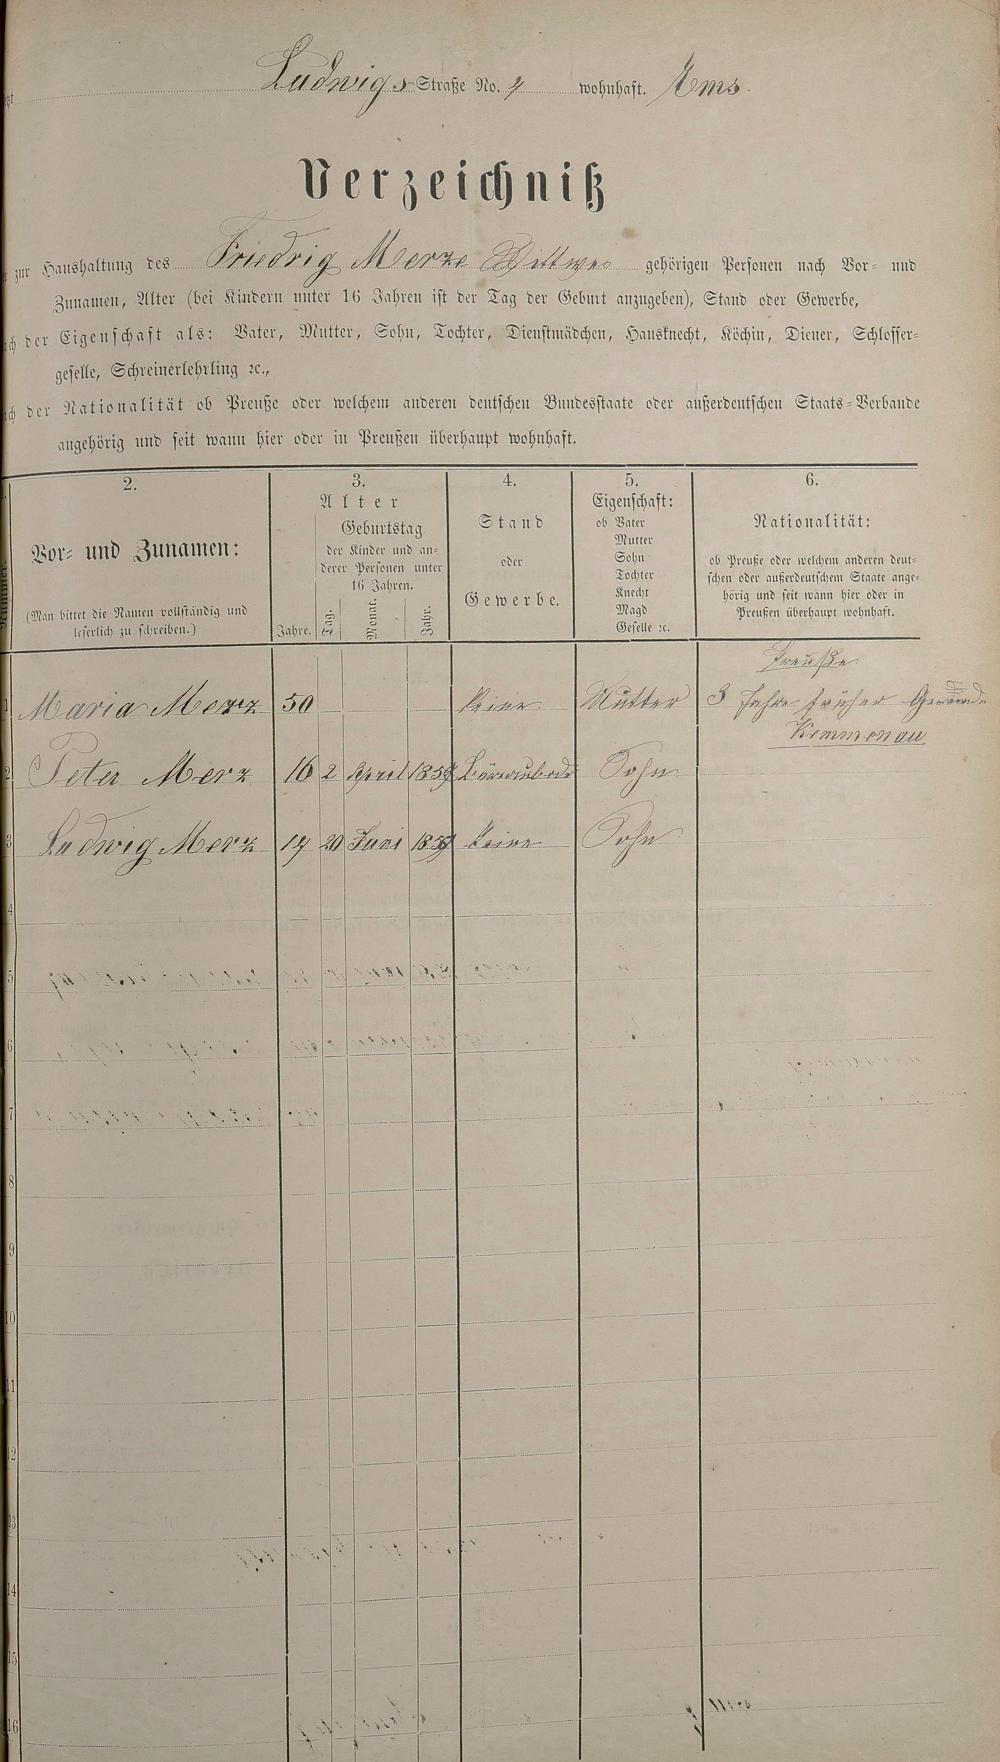 Ludwigs-Straße No. 9 wohnhaft. Ems.
Verzeichniß
zur Haushaltung des Friedrig Merze Wittwe gehörigen Personen nach Vor- und
Zunamen, Alter (bei Kindern unter 16 Jahren ist der Tag der Geburt anzugeben), Stand oder Gewerbe,
der Eigenschaft als: Vater, Mutter, Sohn, Tochter, Dienstmädchen, Hausknecht, Köchin, Diener, Schlosser-
geselle, Schreinerlehrling ꝛc.,
der Nationalität ob Preuße oder welchem anderen deutschen Bundesstaate oder außerdeutschen Staats-Verbande
angehörig und seit wann hier oder in Preußen überhaupt wohnhaft.
2.
Vor- und Zunamen:
(Man bittet die Namen vollständig und
leserlich zu schreiben.)
3.
Alter
Geburtstag
der Kinder und an-
derer Personen unter
16 Jahren.
Jahre. Tag. Monat. Jahr.
4.
Stand
oder
Gewerbe.
5.
Eigenschaft:
ob Vater
Mutter
Sohn
Tochter
Knecht
Magd
Geselle ꝛc.
6.
Nationalität:
ob Preuße oder welchem anderen deut-
schen oder außerdeutschem Staate ange-
hörig und seit wann hier oder in
Preußen überhaupt wohnhaft.
Preuße
1 Maria Merz 50 keine Mutter 3 Jahre früher Gemeinde
Kemmenau
2 Peter Merz 16 2 April 185 Sohn
3 Ludwig Merz 20 Juni 185 keine Sohn
4
5
6
7
8
9
10
11
12
13
14
15
16